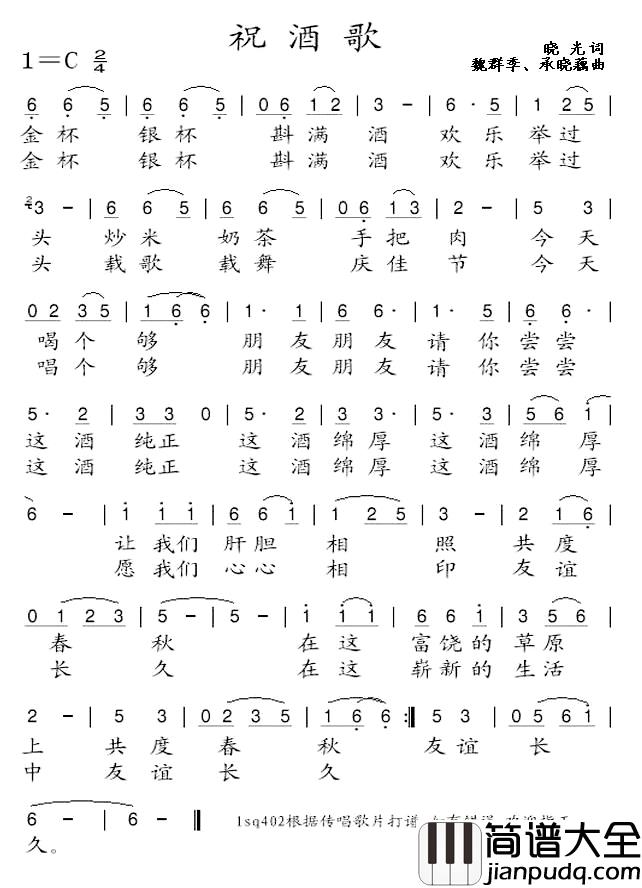 祝酒歌
1=C 2/4
晓光词
魏群季、承晓藕曲
6 6 5 | 6 6 5 | 0 6 1 2 | 3 - | 6· 5 | 1 2 5 |
金杯 银杯 斟满酒 欢乐举过
金杯 银杯 斟满酒 欢乐举过
3 - | 6 6 5 | 6 6 5 | 0 6 1 3 | 2 - | 5 3 |
头 炒米 奶茶 手把肉 今天
头 载歌 载舞 庆佳节 今天
0 2 3 5 | 1 6 6 | 1· 1 | 6 6· | 1· 5 | 6 6· |
喝个够 朋友朋友请你尝尝
唱个够 朋友朋友请你尝尝
5· 2 | 3 3 0 | 5· 2 | 3 3· | 5· 2 | 5 6 1 |
这酒纯正 这酒绵厚 这酒绵厚
这酒纯正 这酒绵厚 这酒绵厚
6 - | 1 1 1 | 6 6 1 | 1 2 5 | 3 - | 2 1 6 |
让我们肝胆相照 共度
愿我们心心相印 友谊
0 1 2 3 | 5 - | 5 - | 1 1 1 | 6 6 1 | 3 5 6 |
春秋 在这富饶的草原
长久 在这崭新的生活
2 - | 5 3 | 0 2 3 5 | 1 6 6 :‖ 5 3 | 0 5 6 1 |
上 共度春秋 友谊长
中 友谊长久
6 - | 6 - ‖
久。
1sq402根据传唱歌片打谱
简谱大全
jianpudq.com